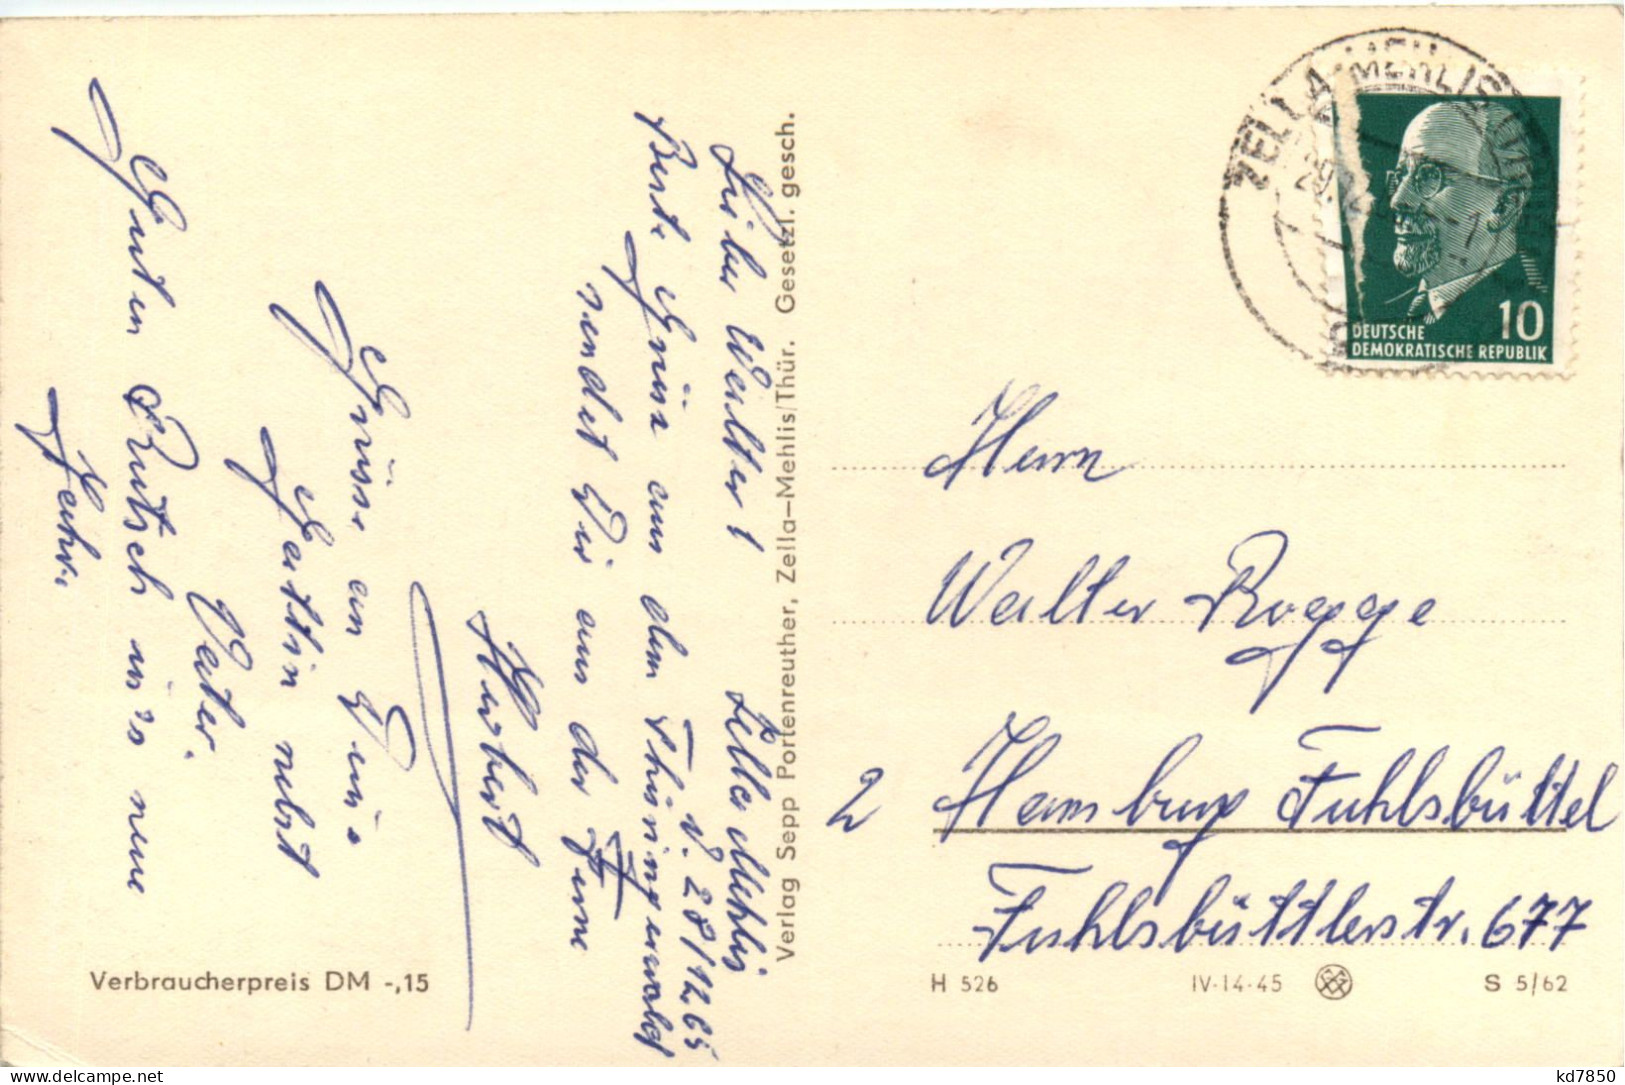 Zella Mehlis
d. 28/12.65
Lieber Walter!
Beste Grüsse aus dem Thüringerwald
sendet Dir aus der Ferne
Herbert
Grüsse an Deine
Gattin nebst
Vater.
Guten Rutsch in's neue
Jahr.
Verbraucherpreis DM -,15
Verlag Sepp Portenreuther, Zella-Mehlis/Thür. Gesetzl. gesch.
ZELLA-MEHLIS
10
DEUTSCHE
DEMOKRATISCHE REPUBLIK
Herrn
Walter Rogge
2 Hamburg Fuhlsbüttel
Fuhlsbüttlerstr. 677
H 526 IV-14-45 S 5/62
kd7850